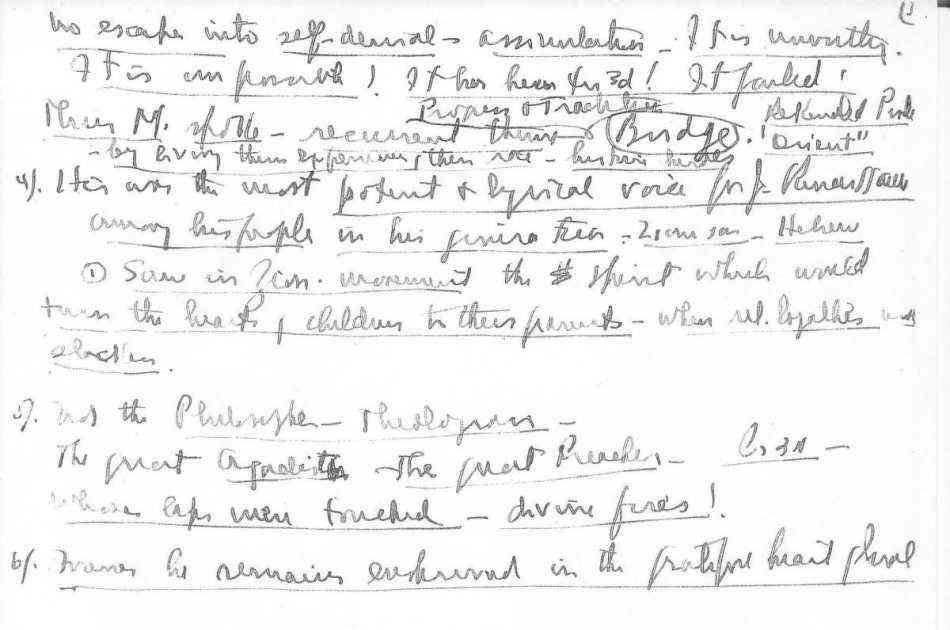 no escape into self-denial - assimilation - It is unworthy.
It is impossible! It has been tried! It failed!
Progress & Tradition
Thus M. spoke - recurrent theme - Bridge. "Orient"
- by living these experiences, their race - historic
4). It is was the most potent & lyrical voice for J. Renaissance
among his people in his generation - Zionism - Hebrew
① Saw in Zion. movement the spirit which would
turn the hearts of children to their parents - when rel. loyalties
slacken.
5). Not the Philosopher - Theologian -
The great Agadist - The great Preacher -
Whose lips were touched - divine fires!
6). he remains enshrined in the grateful heart